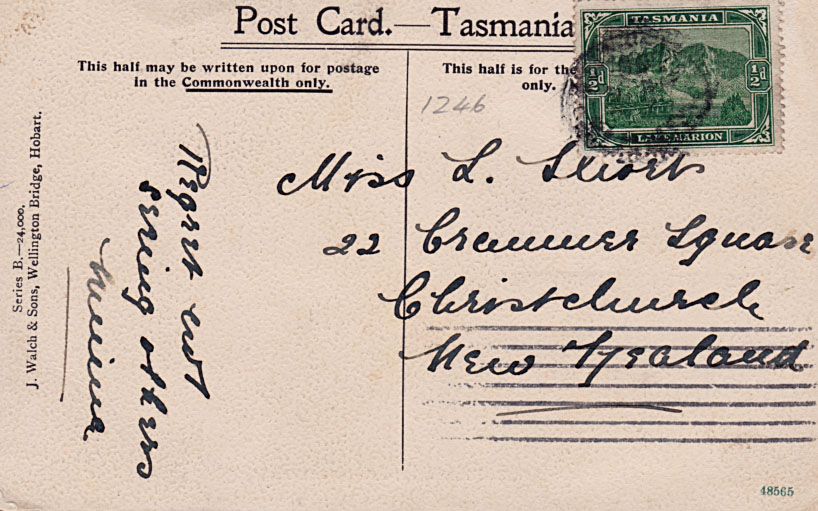 Post Card.—Tasmania
This half may be written upon for postage
in the Commonwealth only.
This half is for the
only.
TASMANIA
½d ½d
LAKE MARION
1246
Miss L.
22 Cranmer Square
Christchurch
New Zealand
Regret not
seeing others
Series B.—24,000.
J. Walch & Sons, Wellington Bridge, Hobart.
48565